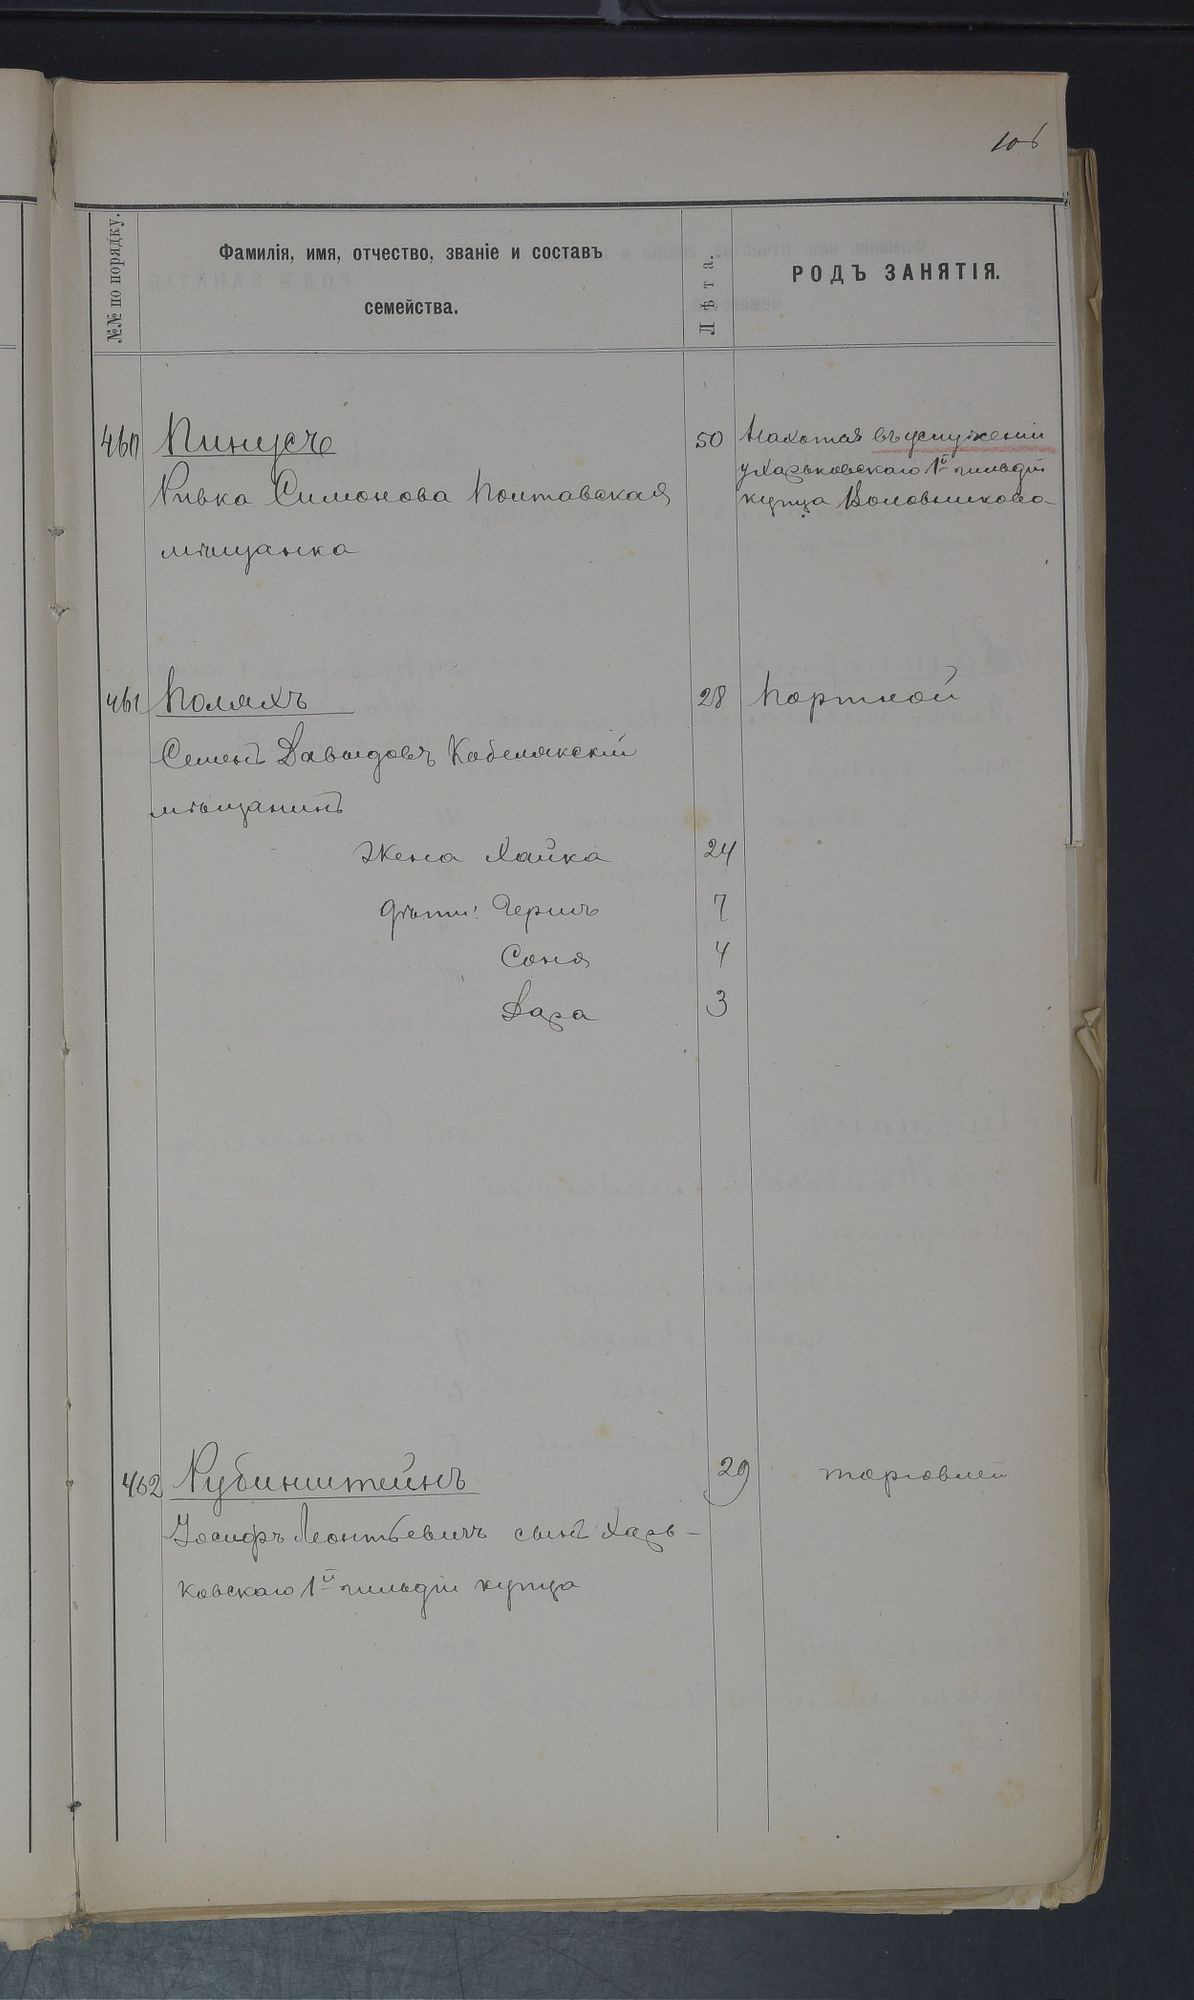 106
№№ по порядку.
Фамилія, имя, отчество, званіе и составъ
семейства.
Лѣта.
РОДЪ ЗАНЯТІЯ.
460 Пинусъ 50 въ услуженіи
Ривка Симонова Полтавская у Харьковскаго 1й гильдіи
мѣщанка купца
461 Поляхъ 28 Портной
Семенъ Давыдовъ Кобелякскій
мѣщанинъ
Жена Хайка 24
дѣти: Гершъ 7
Соня 4
Дара 3
462 Рубинштейнъ 29 торговлей
Іосифъ Леонтьевичъ сынъ Харь-
ковскаго 1й гильдіи купца